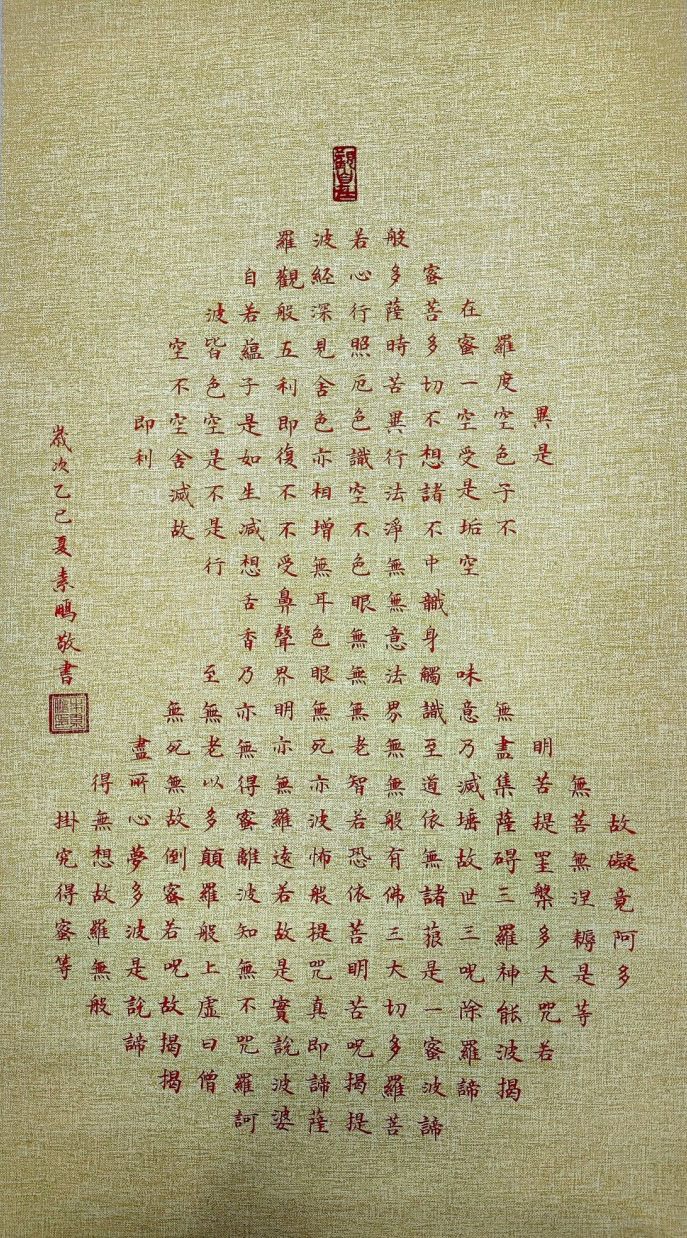 觀自在
般若波羅
蜜多心經觀自
在菩薩行深般若波
羅蜜多時照見五蘊皆空
度一切苦厄舍利子色不
異空空不異色色即是空空即
是色受想行識亦復如是舍利
子是諸法空相不生不滅
不垢不淨不增不減是故
空中無色無受想行
識無眼耳鼻舌
身意無色聲香
味觸法無眼界乃至
無意識界無無明亦無無
明盡乃至無老死亦無老死盡
無苦集滅道無智亦無得以無所得
故菩提薩埵依般若波羅蜜多故心無掛
礙無罣碍故無有恐怖遠離顛倒夢想究
竟涅槃三世諸佛依般若波羅蜜多故得
阿耨多羅三藐三菩提故知般若波羅蜜
多是大神咒是大明咒是無上咒是無等
等咒能除一切苦真實不虛故說般
若波羅蜜多咒即說咒曰揭諦
揭諦波羅揭諦波羅僧揭
諦菩提薩婆訶
歲次乙巳夏素鵬敬書